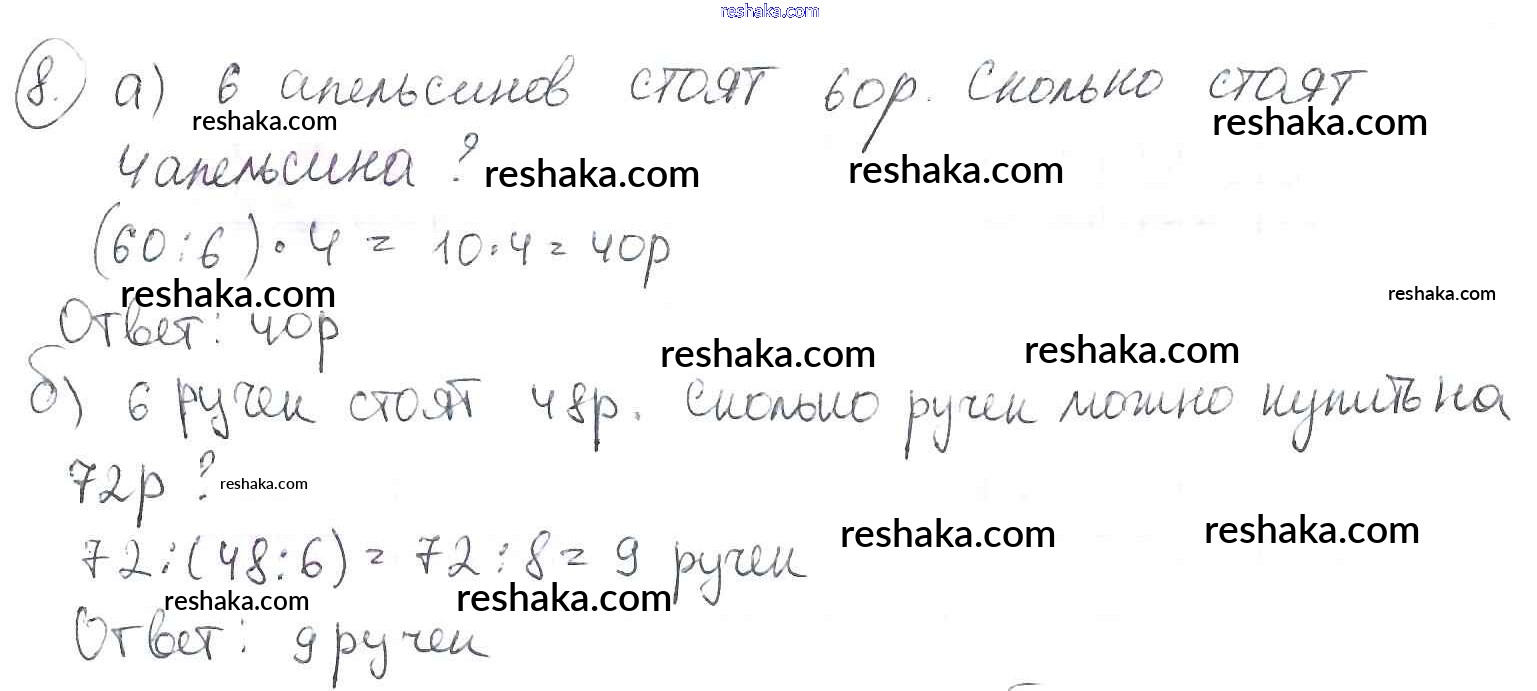 reshaka.com
8. а) 6 апельсинов стоят 60р. Сколько стоят
reshaka.com reshaka.com
4 апельсина ? reshaka.com reshaka.com
(60:6)·4 = 10·4 = 40р
reshaka.com reshaka.com
Ответ: 40р
reshaka.com reshaka.com
б) 6 ручек стоят 48р. Сколько ручек можно купить на
72р ? reshaka.com
reshaka.com reshaka.com
72:(48:6) = 72:8 = 9 ручек
reshaka.com reshaka.com
Ответ: 9 ручек